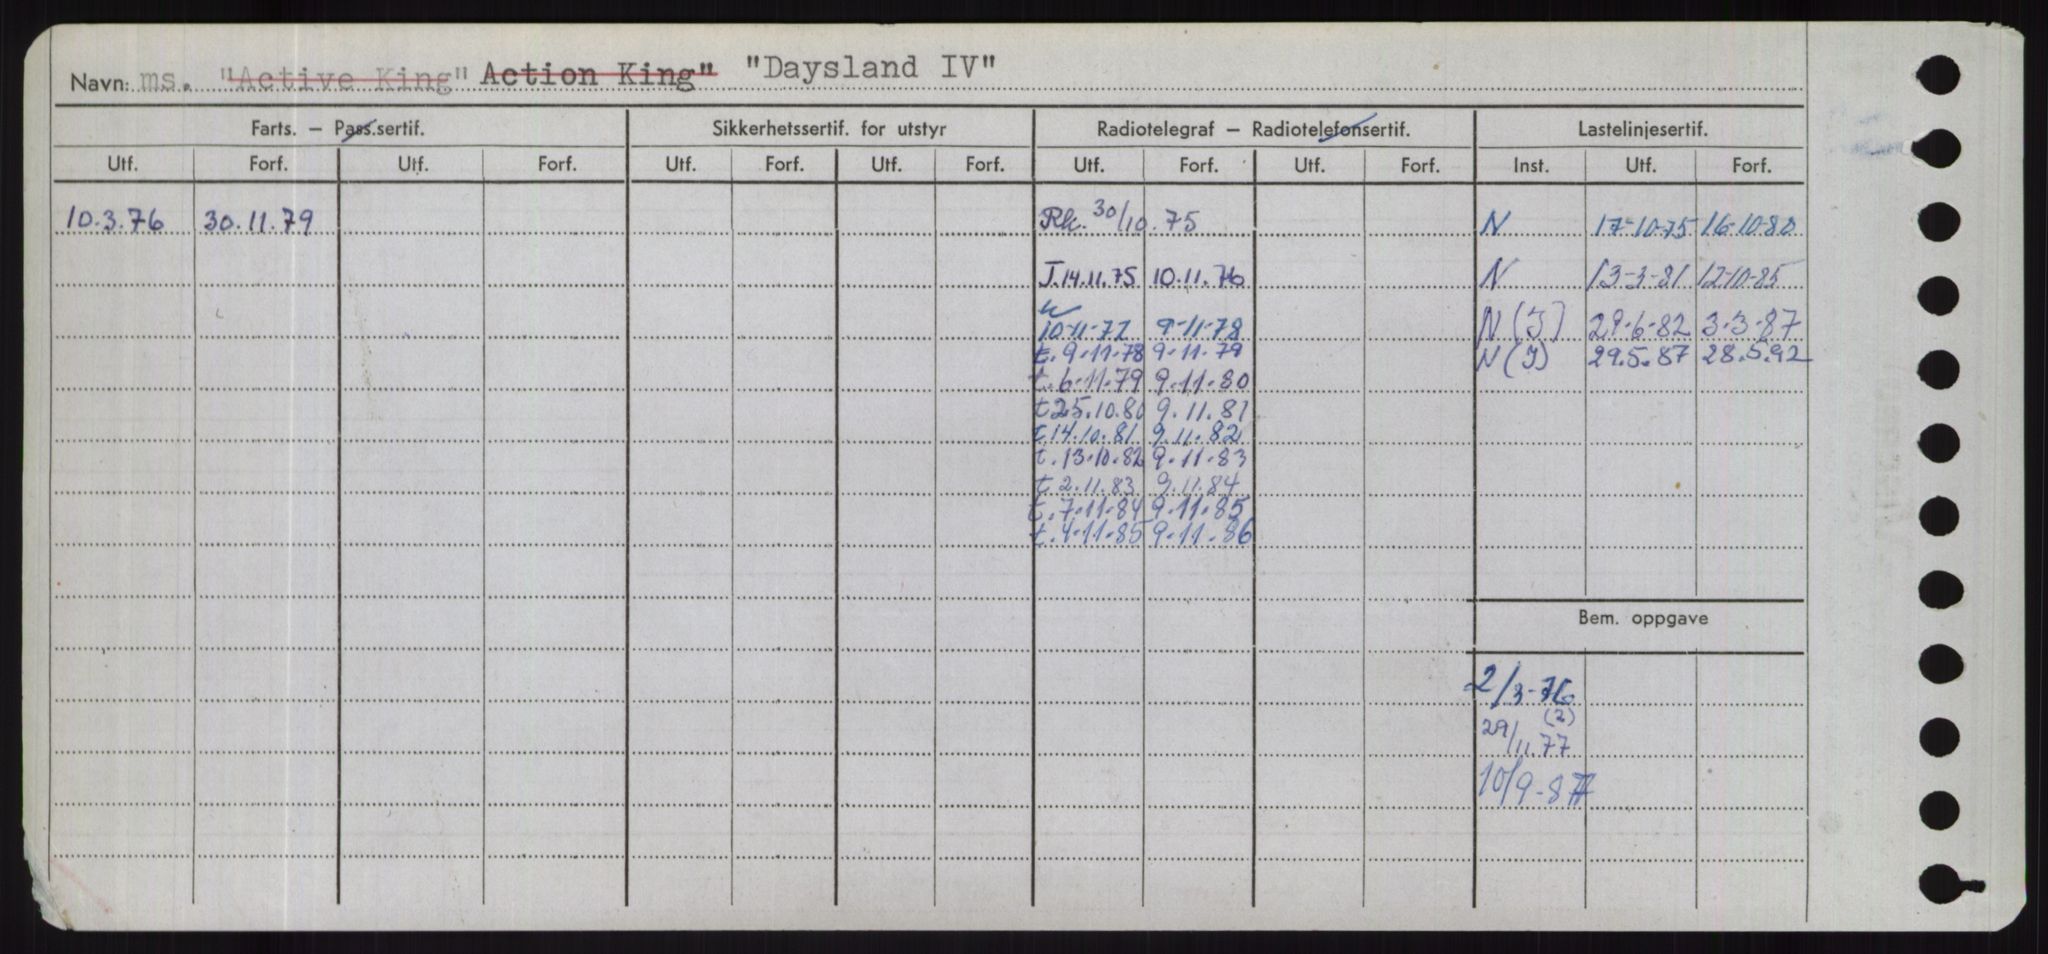 Navn: ms. "Active King" Action King" "Daysland IV"
Farts. – Pass.sertif. Sikkerhetssertif. for utstyr Radiotelegraf – Radiotelefonsertif. Lastelinjesertif.
Utf. Forf. Utf. Forf. Utf. Forf. Utf. Forf. Utf. Forf. Utf. Forf. Inst. Utf. Forf.
10.3.76 30.11.79 Rk. 30/10.75 N 17-10-75 16-10-80
J.14.11.75 10.11.76 N 13-3-81 12-10-85
10-11-77 9-11-78 N (J) 29-6-82 3-3-87
t.9-11-78 9-11-79 N (J) 29.5.87 28.5.92
t.6-11-79 9-11-80
t 25.10.80 9.11.81
t.14.10.81 9.11.82
t.13-10-82 9-11-83
t 2.11.83 9.11.84
t.7-11-84 9-11-85
t.4-11-85 9-11-86
Bem. oppgave
2/3-76
(2)
29/11.77
10/9-87